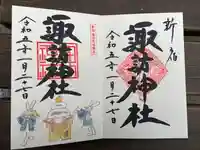 新宿
諏訪神社
令和五年一月二十七日
諏訪神社
令和五年一月二十七日